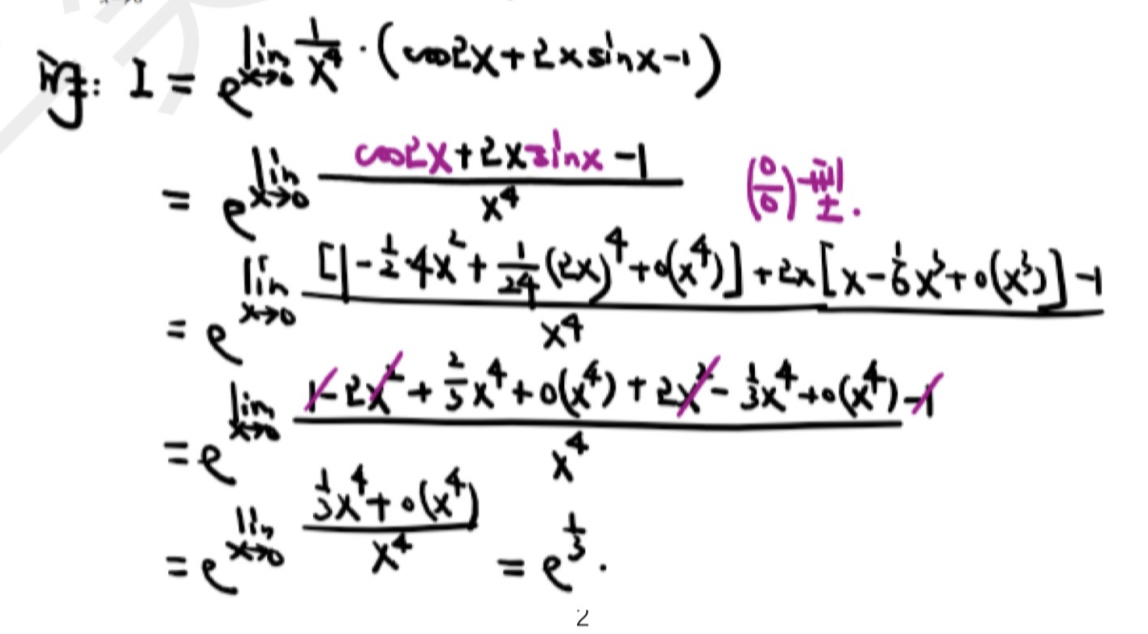 解: I = e^{lim_{x→0} \frac{1}{x^4} · (cos2x + 2x sinx - 1)}
= e^{lim_{x→0} \frac{cos2x + 2x sinx - 1}{x^4}} (\frac{0}{0})型
= e^{lim_{x→0} \frac{[1 - \frac{1}{2}·4x^2 + \frac{1}{24}(2x)^4 + o(x^4)] + 2x[x - \frac{1}{6}x^3 + o(x^3)] - 1}{x^4}}
= e^{lim_{x→0} \frac{1 - 2x^2 + \frac{2}{3}x^4 + o(x^4) + 2x^2 - \frac{1}{3}x^4 + o(x^4) - 1}{x^4}}
= e^{lim_{x→0} \frac{\frac{1}{3}x^4 + o(x^4)}{x^4}} = e^{\frac{1}{3}}.
2